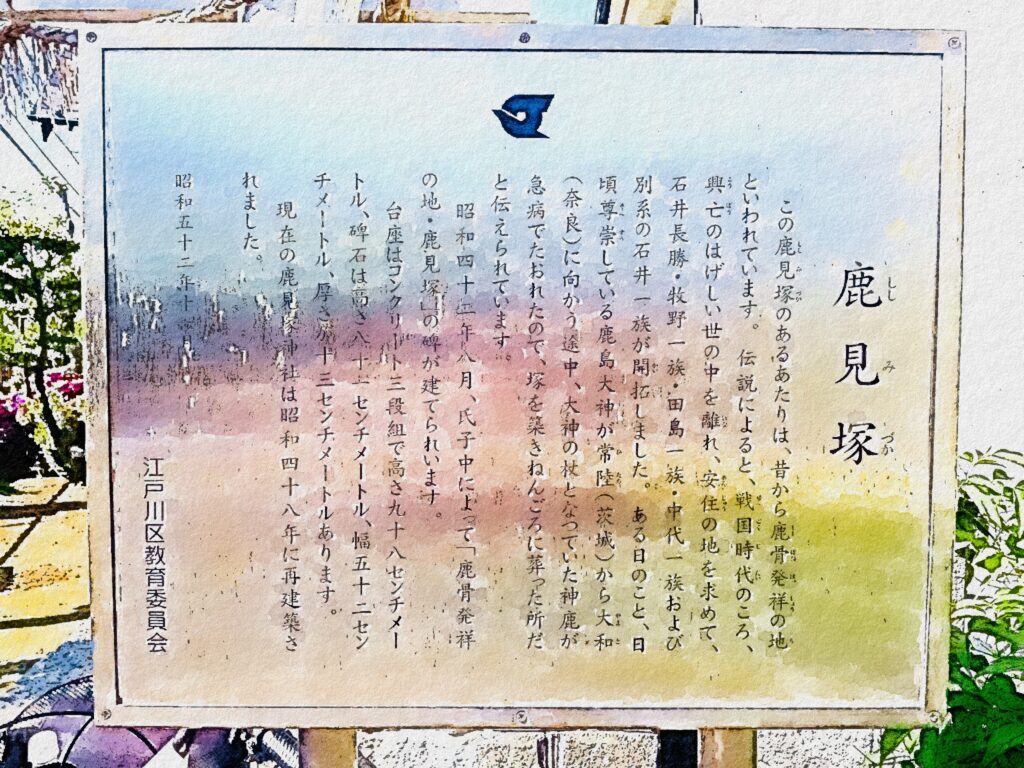 鹿見塚
この鹿見塚のあるあたりは、昔から鹿骨発祥の地
といわれています。伝説によると、戦国時代のころ、
興亡のはげしい世の中を離れ、安住の地を求めて、
石井長勝・牧野一族・田島一族・中代一族および
別系の石井一族が開拓しました。ある日のこと、日
頃尊崇している鹿島大神が常陸(茨城)から大和
(奈良)に向かう途中、大神の杖となつていた神鹿が
急病でたおれたので、塚を築きねんごろに葬った所だ
と伝えられています。
昭和四十二年八月、氏子中によって「鹿骨発祥
の地・鹿見塚」の碑が建てられいます。
台座はコンクリート三段組で高さ九十八センチメー
トル、碑石は高さ八十センチメートル、幅五十二セン
チメートル、厚さ十三センチメートルあります。
現在の鹿見塚神社は昭和四十八年に再建築さ
れました。
昭和五十二年十月
江戸川区教育委員会